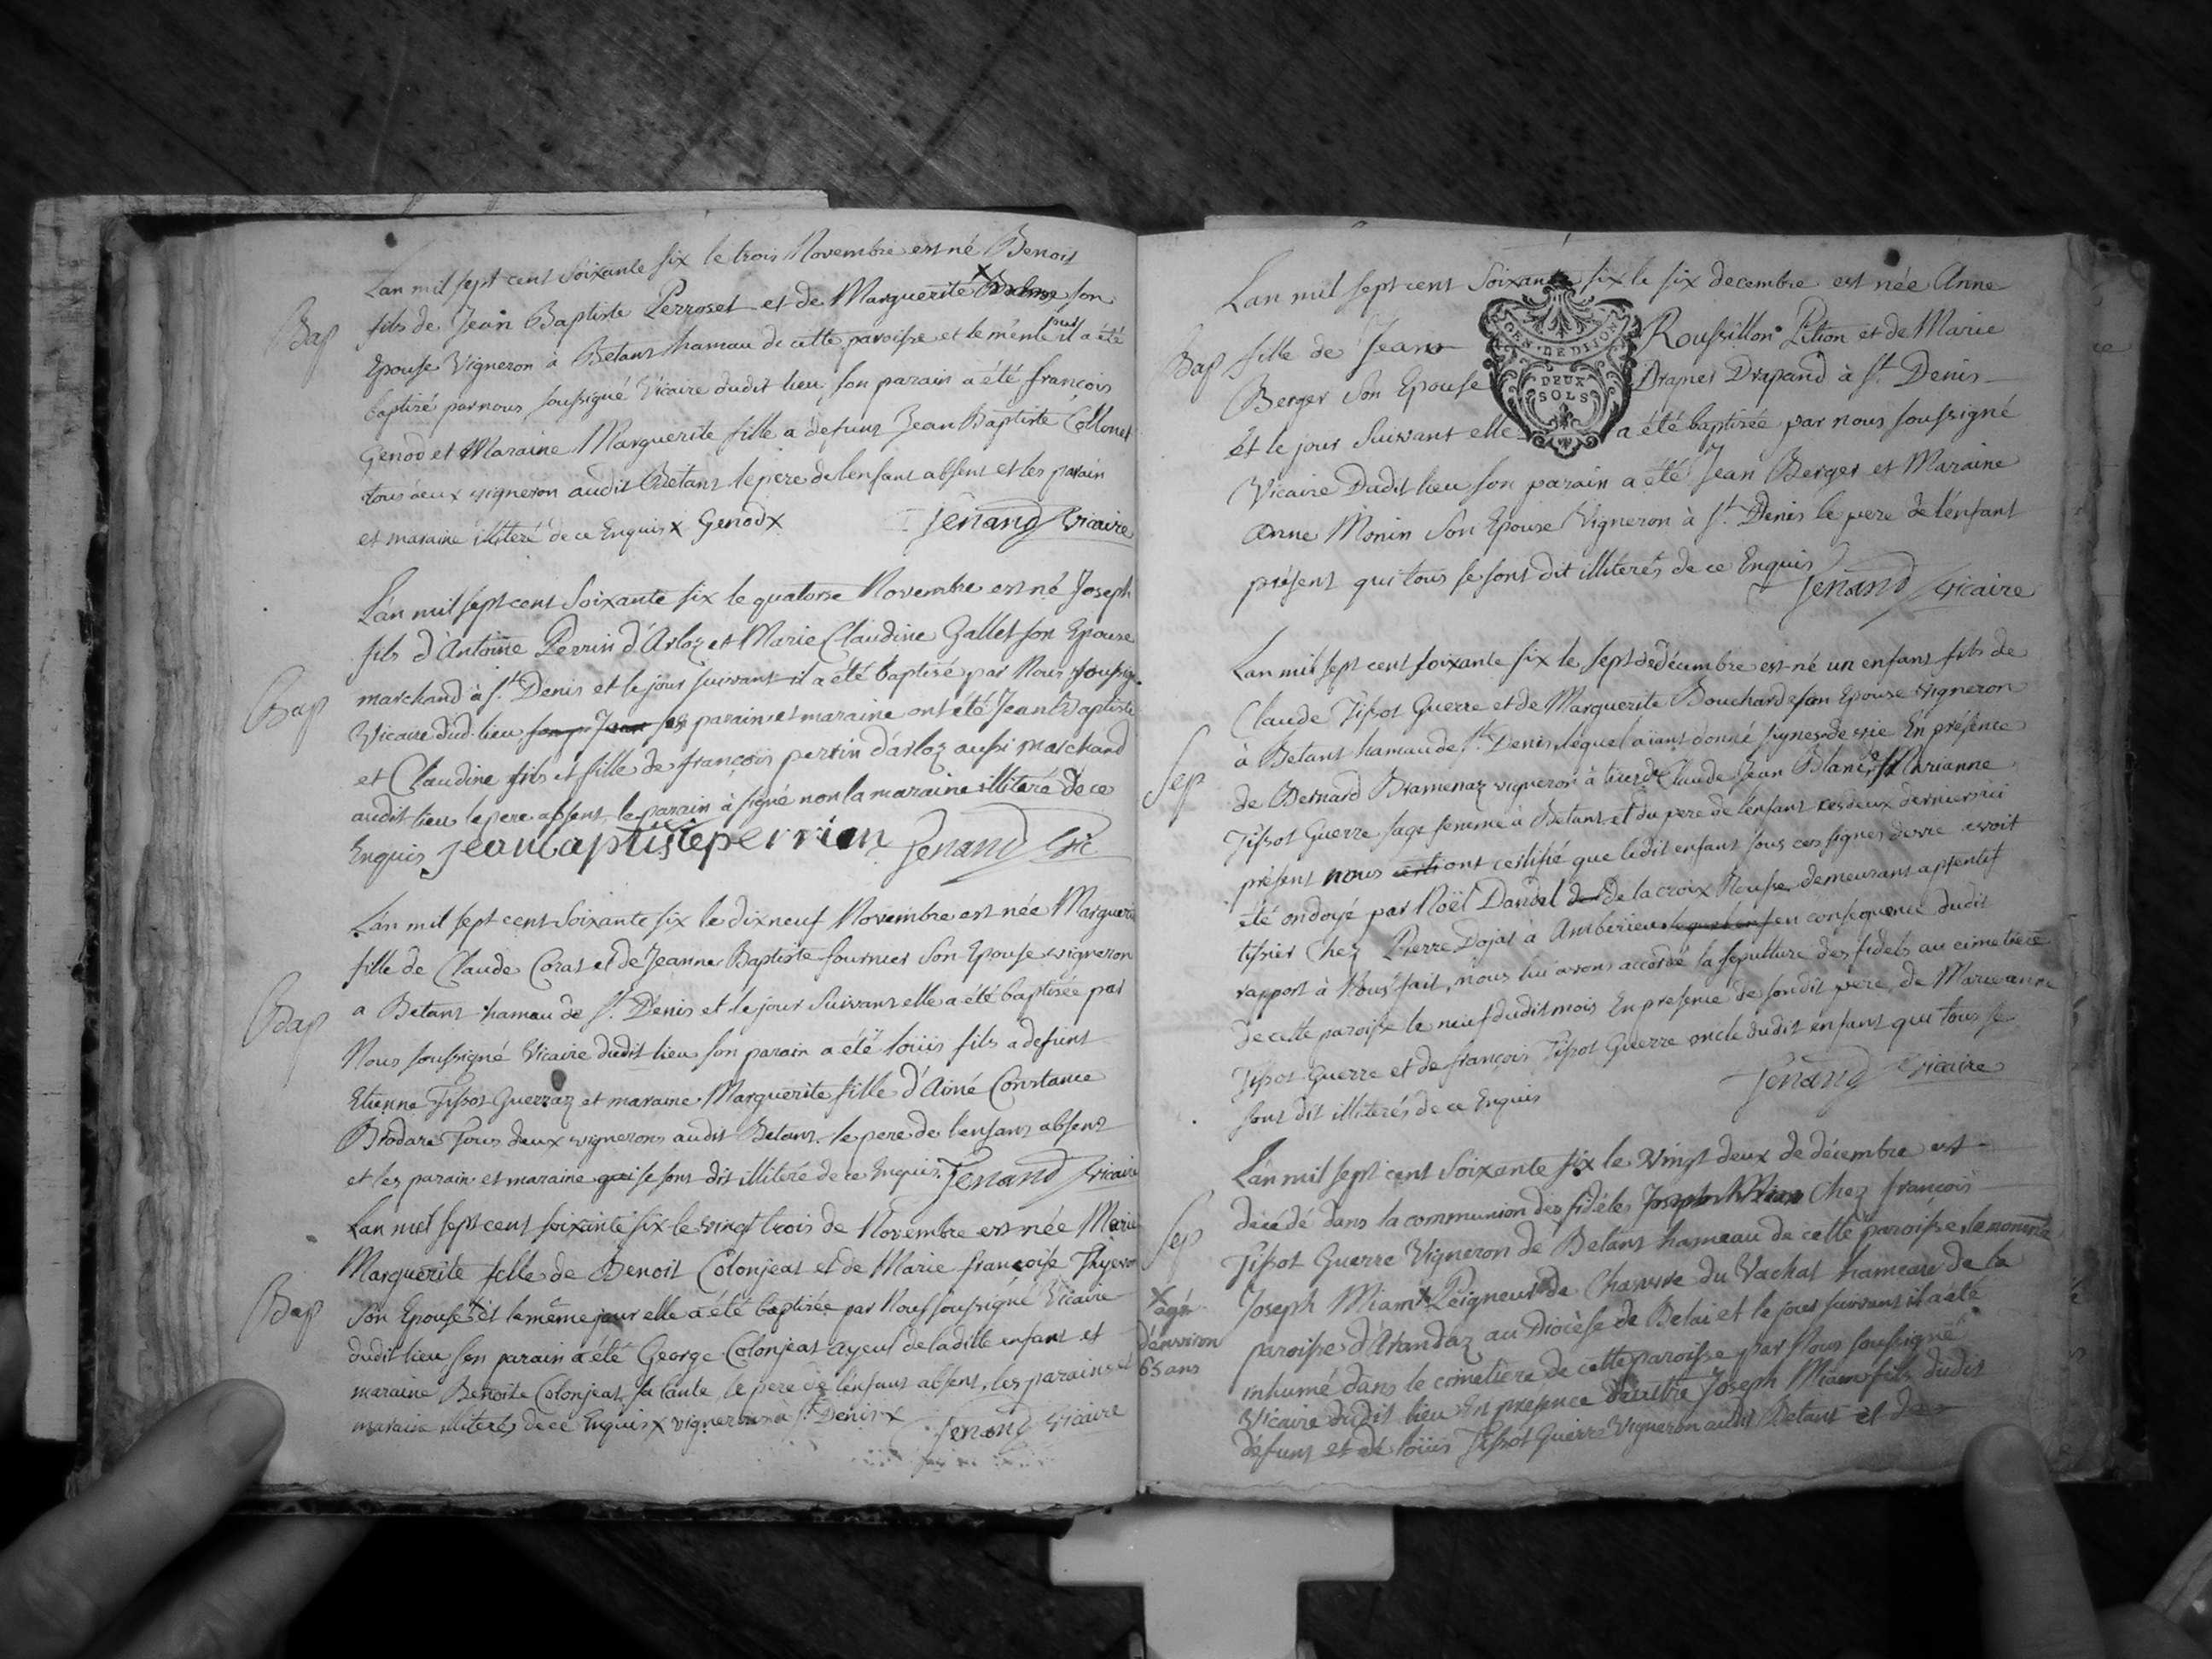 L'an mil sept cent Soixante six le trois Novembre est né Benoit
Bap
fils de Jean Baptiste Perroset et de Marguerite son
Epouse Vigneron à Betant hamau de cette paroisse et le même jour il a été
baptizé par nous soussigné Vicaire dudit lieu, son parain a été françois
Genod et Maraine Marguerite fille a defunt Jean Baptiste Collonet
tous deux vigneron audit Betant le pere de l'enfant absent et les parain
et maraine illiteré de ce Enquis x Genod x Jenand Vicaire
L'an mil sept cent Soixante six le quatorse Novembre est né Joseph
fils d'Antoine Perrin d'Arloz et Marie Claudine Gallet son Epouse
Bap
marchand à St. Denis et le jour suivant il a été baptisé par Nous soussig.
Vicaire dud. lieu ses parain et maraine ont été Jean Baptiste
et Claudine fils et fille de françois perrin d'arloz aussi marchand
audit lieu le pere absent, le parain à signé non la maraine illiteré de ce
Enquis jeanbaptisteperrin Jenand Vic
L'an mil sept cent Soixante six le dixneuf Novembre est née Marguerite
fille de Claude Coras et de Jeanne Baptiste fournier Son Epouse vigneron
Bap
a Betant hamau de St. Denis et le jour Suivant elle a été baptisée par
Nous soussigné Vicaire dudit lieu son parain a été loüis fils a defunt
Etienne Tissot Guerraz et maraine Marguerite fille d'Aimé Constance
Brodare Tous deux vignerons audit Betant, le pere de l'enfant absent
et les parain et maraine qui se sont dit illiteré de ce Enquis. Jenand Vicaire
L'an mil sept cent soixante six le vingt trois de Novembre est née Marie
Marguerite fille de Benoit Colonjeat et de Marie françoise
Bap
Son Epouse et le même jour elle a été baptisée par Nous soussigné Vicaire
dudit lieu son parain a été George Colonjeat ayeul de ladite enfant et
maraine Benoite Colonjeat, sa tante, le pere de l'enfant absent, les parain et
maraine illiterés de ce Enquis x vigneron à St. Denis x Jenand Vicaire
L'an mil sept cent Soixante six le six decembre est née Anne
Bap
fille de Jean Roussillon Pition et de Marie
GEN. DE DIJON
DEUX
SOLS
Berger Son Epouse Drapand à St. Denis
Et le jour Suivant elle a été baptisée par nous soussigné
Vicaire Dudit lieu son parain a été Jean Berger et Maraine
Anne Monin Son Epouse Vigneron à St. Denis le pere de l'enfant
présent qui tous se sont dit illiterés de ce Enquis
Jenand Vicaire
L'an mil sept cent soixante six le sept de décembre est né un enfant fils de
Claude Tissot Guerre et de Marguerite Bouchard son Epouse vigneron
Sep
à Betant hamau de St. Denis lequel aiant donné signes de vie En présence
de Bernard Bramenaz vigneron à Claude Jean Blanc, Marianne
Tissot Guerre sage femme à Betant et du pere de l'enfant ces deux derniers ici
présent nous ont certifié que ledit enfant sous ces signes de vie avoit
été ondoyé par Noël Dandel de la croix Rousse, demeurant apprentif
tissier Chez Pierre Dojat à Amberieu en consequence dudit
rapport à Nous fait, nous lui avons accordé la sepulture des fidels au cimetiere
de cette paroisse le neuf dudit mois En presence de son dit pere, de Marieanne
Tissot Guerre et de françois Tissot Guerre oncle dudit enfant qui tous se
sont dit illiterés de ce Enquis
Jenand Vicaire
L'an mil sept cent Soixante six le Vingt deux de décembre est
Sep
décédé dans la communion des fidéles Chez françois
Tissot Guerre Vigneron de Betant hameau de cette paroisse le nommé
Joseph Miam x Peigneur de Chanvre du Vachat hameau de la
x agé
d'environ
65 ans
paroisse d'Arandaz au Diocèse de Belai et le jour suivant il a été
inhumé dans le cimetiere de cette paroisse par Nous soussigné
Vicaire dudit lieu En presence Joseph Miam fils dudit
défunt et de loüis Tissot Guerre Vigneron audit Betant et de